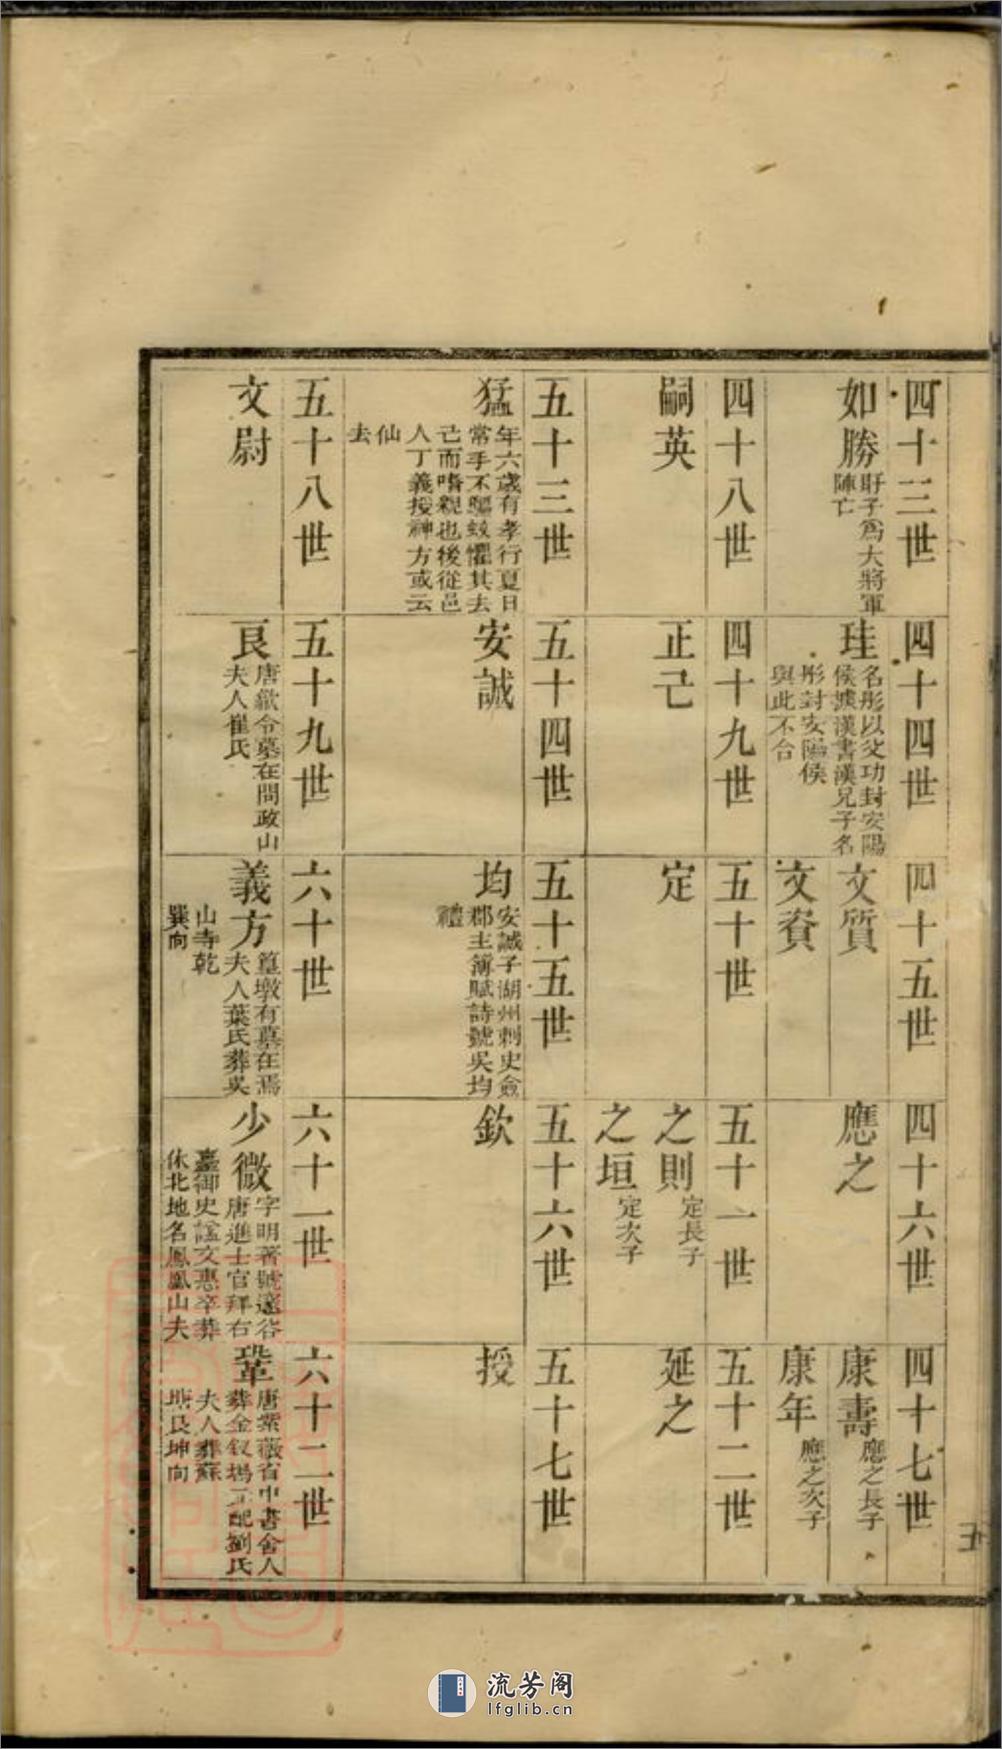 四十三世
如勝
財子爲大將軍
陣亡
四十四世
珪
名彤以父功封安陽
侯據漢書漢兄子名
彤封安陽侯
與此不合
四十五世
文質
文資
四十六世
應之
四十七世
康壽
應之長子
康年
應之次子
四十八世
嗣英
四十九世
正己
五十世
定
五十一世
之則
定長子
之垣
定次子
五十二世
延之
五十三世
猛
年六歲有孝行夏日
常手不驅蚊懼其去
己而噆親也後從邑
人丁義授神方或云
仙
去
五十四世
安誠
五十五世
均
安誠子湖州刺史僉
郡主簿賦詩號吳均
禮
五十六世
欽
五十七世
授
五十八世
文尉
五十九世
良
唐歙令墓在問政山
夫人崔氏
六十世
義方
篁墩有墓在焉
夫人葉氏葬吳
山寺乾
巽向
六十一世
少微
字明著號遯谷
唐進士官拜右
臺御史謚文惠卒葬
休北地名鳳凰山夫
六十二世
鞏
唐紫薇省中書舍人
葬金釵塲元配劉氏
夫人葬蘇
塘艮坤向
五
流芳阁
lfglib.cn